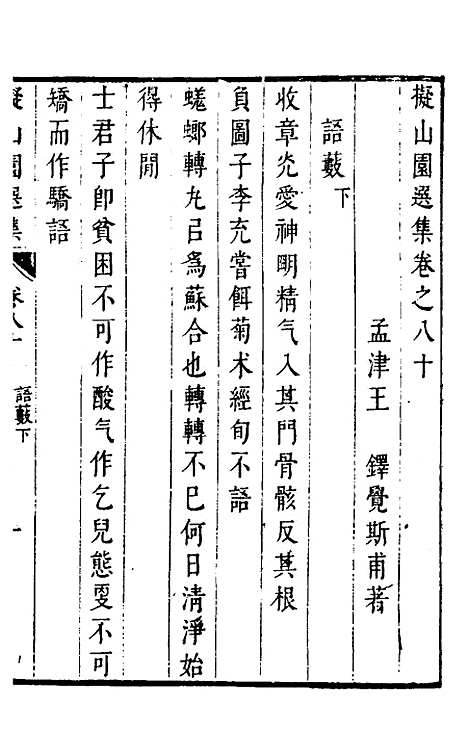 擬山園選集卷之八十
孟津王　鐸覺斯甫著
語藪下
收章炗愛神明精气入其門骨骸反其根
負圖子李充嘗餌菊术經旬不語
蜣螂轉丸㠯為蘇合也轉轉不已何日淸淨始
得休閒
士君子卽貧困不可作酸气作乞兒態更不可
矯而作驕語
擬山園選集
卷八十
語藪下
一